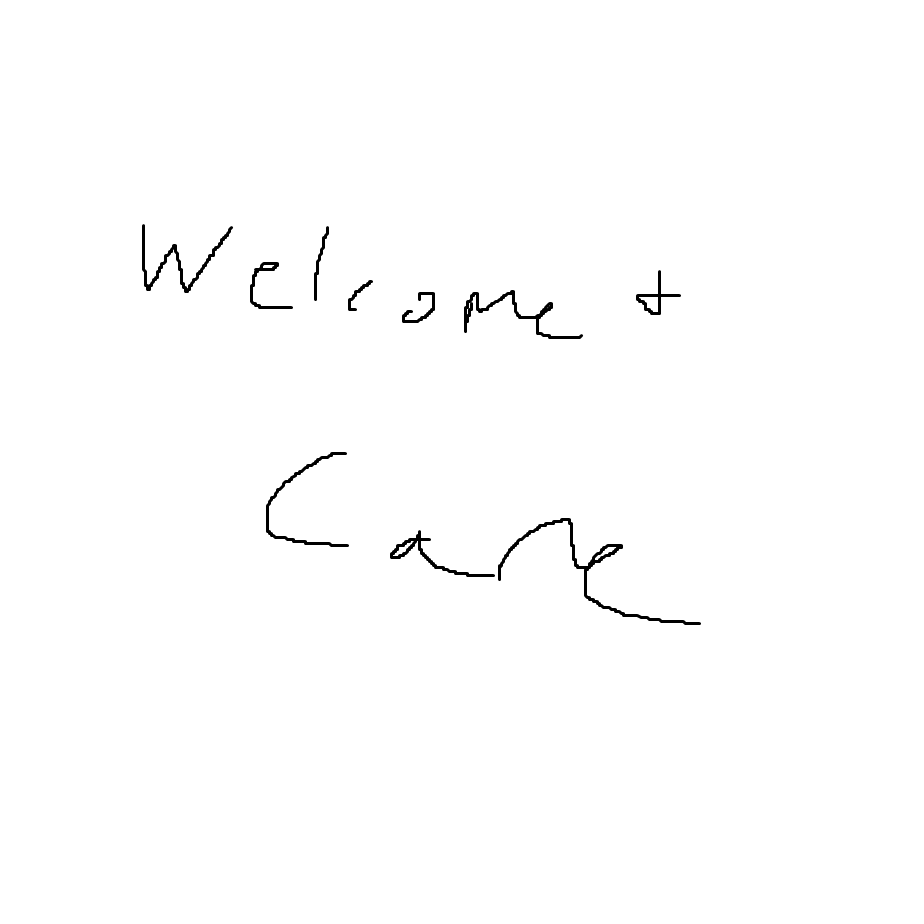 Welcome +
Care